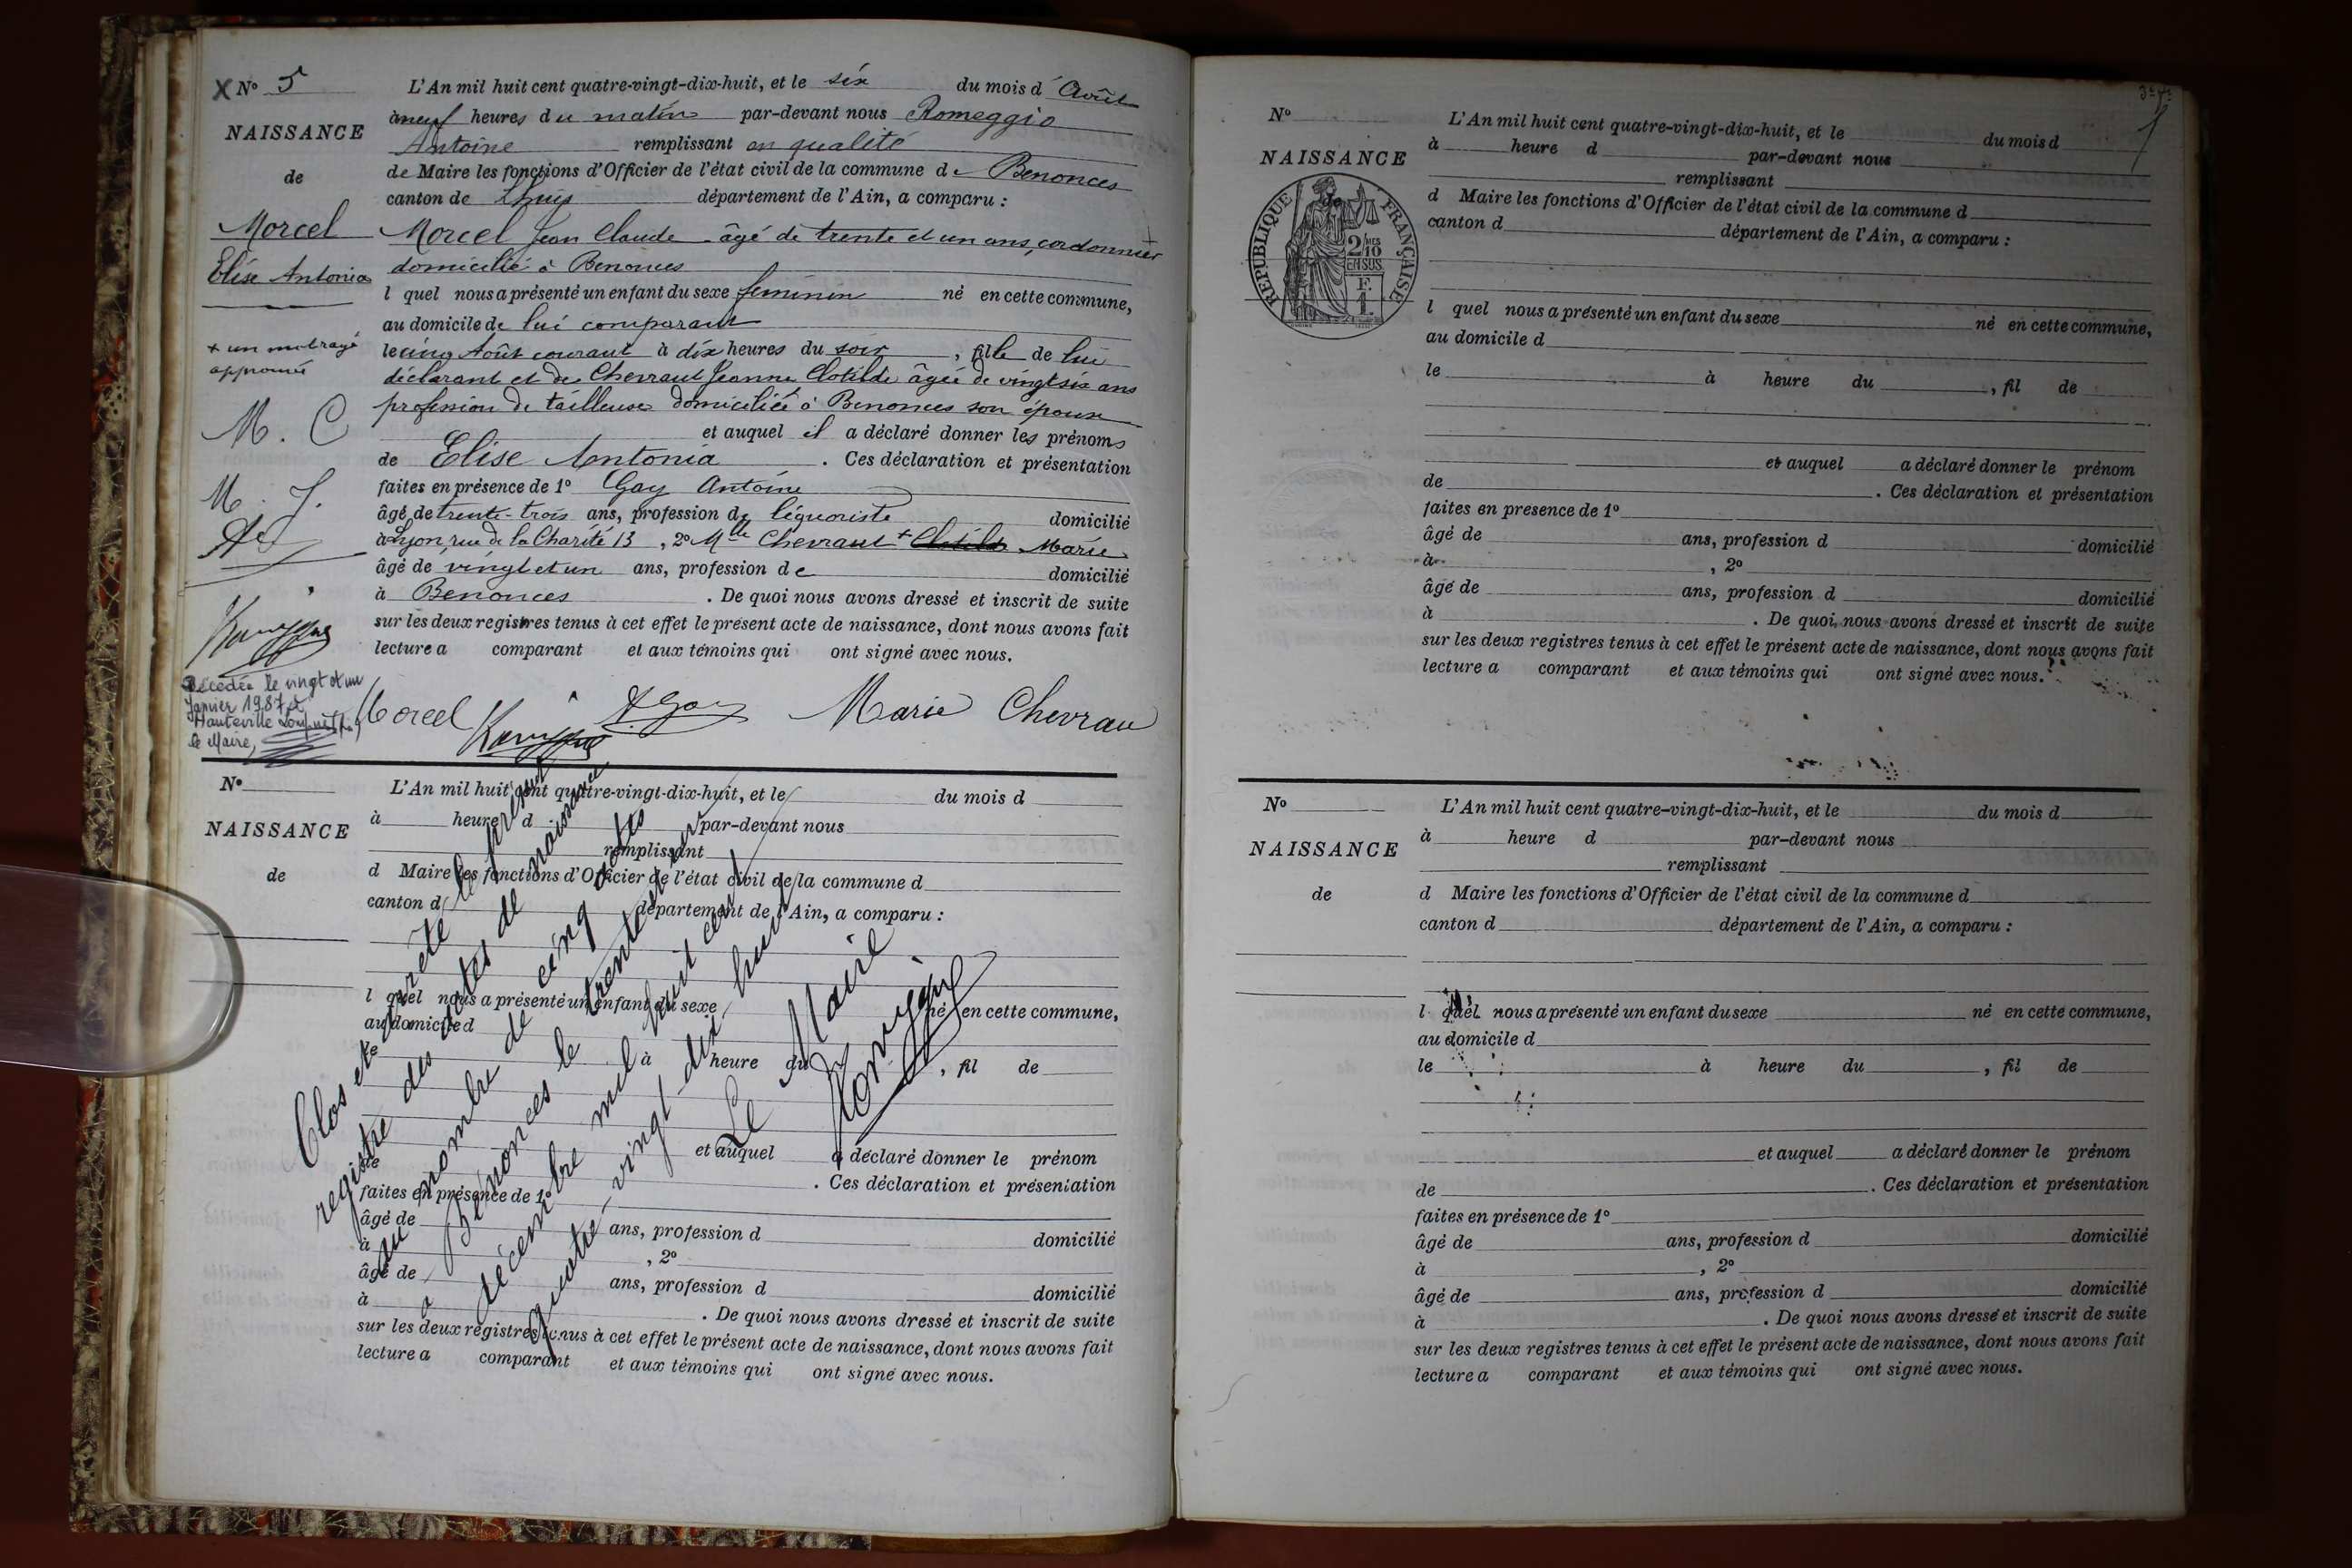 X Nº 5
NAISSANCE
de
Morcel
Elise Antonia
+ un mot rayé
approuvé
M. C
M. J.
AG
Décédée le vingt et un
Janvier 1987 à
Hauteville Lompnes
le Maire,
L'An mil huit cent quatre-vingt-dix-huit, et le six du mois d'Août
à neuf heures du matin par-devant nous Romeggio
Antoine remplissant en qualité
de Maire les fonctions d'Officier de l'état civil de la commune de Benonces
canton de Lhuis département de l'Ain, a comparu :
Morcel Jean Claude âgé de trente et un ans, cordonnier
domicilié à Benonces
lequel nous a présenté un enfant du sexe feminin né en cette commune,
au domicile de lui comparant
le cinq Août courant à dix heures du soir, fille de lui
déclarant et de Chevraut Jeanne Clotilde âgée de vingt six ans
profession de tailleuse domiciliée à Benonces son épouse
et auquel il a déclaré donner les prénoms
de Elise Antonia. Ces déclaration et présentation
faites en présence de 1º Gay Antoine
âgé de trente-trois ans, profession de liquoriste domicilié
à Lyon, rue de la Charité 13, 2º Mlle Chevraut + Clotilde Marie
âgé de vingt et un ans, profession de domicilié
à Benonces. De quoi nous avons dressé et inscrit de suite
sur les deux registres tenus à cet effet le présent acte de naissance, dont nous avons fait
lecture a comparant et aux témoins qui ont signé avec nous.
Morcel A. Gay Marie Chevrau
Nº
NAISSANCE
de
L'An mil huit cent quatre-vingt-dix-huit, et le du mois d
à heure d par-devant nous
remplissant
d Maire les fonctions d'Officier de l'état civil de la commune d
canton d département de l'Ain, a comparu :
l quel nous a présenté un enfant du sexe né en cette commune,
au domicile d
le à heure du , fil de
et auquel a déclaré donner le prénom
de . Ces déclaration et présentation
faites en présence de 1º
âgé de ans, profession d domicilié
à , 2º
âgé de ans, profession d domicilié
à . De quoi nous avons dressé et inscrit de suite
sur les deux registres tenus à cet effet le présent acte de naissance, dont nous avons fait
lecture a comparant et aux témoins qui ont signé avec nous.
Clos et arrêté le présent
registre des actes de naissance
au nombre de cinq actes
à Bénonces le trente et un
décembre mil huit cent
quatre-vingt-dix huit
Le Maire
Nº
NAISSANCE
RÉPUBLIQUE FRANÇAISE
2/10 MES
EN SUS
F.
1.
L'An mil huit cent quatre-vingt-dix-huit, et le du mois d
à heure d par-devant nous
remplissant
d Maire les fonctions d'Officier de l'état civil de la commune d
canton d département de l'Ain, a comparu :
l quel nous a présenté un enfant du sexe né en cette commune,
au domicile d
le à heure du , fil de
et auquel a déclaré donner le prénom
de . Ces déclaration et présentation
faites en presence de 1º
âgé de ans, profession d domicilié
à , 2º
âgé de ans, profession d domicilié
à . De quoi nous avons dressé et inscrit de suite
sur les deux registres tenus à cet effet le présent acte de naissance, dont nous avons fait
lecture a comparant et aux témoins qui ont signé avec nous.
Nº
NAISSANCE
de
L'An mil huit cent quatre-vingt-dix-huit, et le du mois d
à heure d par-devant nous
remplissant
d Maire les fonctions d'Officier de l'état civil de la commune d
canton d département de l'Ain, a comparu :
l quel nous a présenté un enfant du sexe né en cette commune,
au domicile d
le à heure du , fil de
et auquel a déclaré donner le prénom
de . Ces déclaration et présentation
faites en présence de 1º
âgé de ans, profession d domicilié
à , 2º
âgé de ans, profession d domicilié
à . De quoi nous avons dressé et inscrit de suite
sur les deux registres tenus à cet effet le présent acte de naissance, dont nous avons fait
lecture a comparant et aux témoins qui ont signé avec nous.